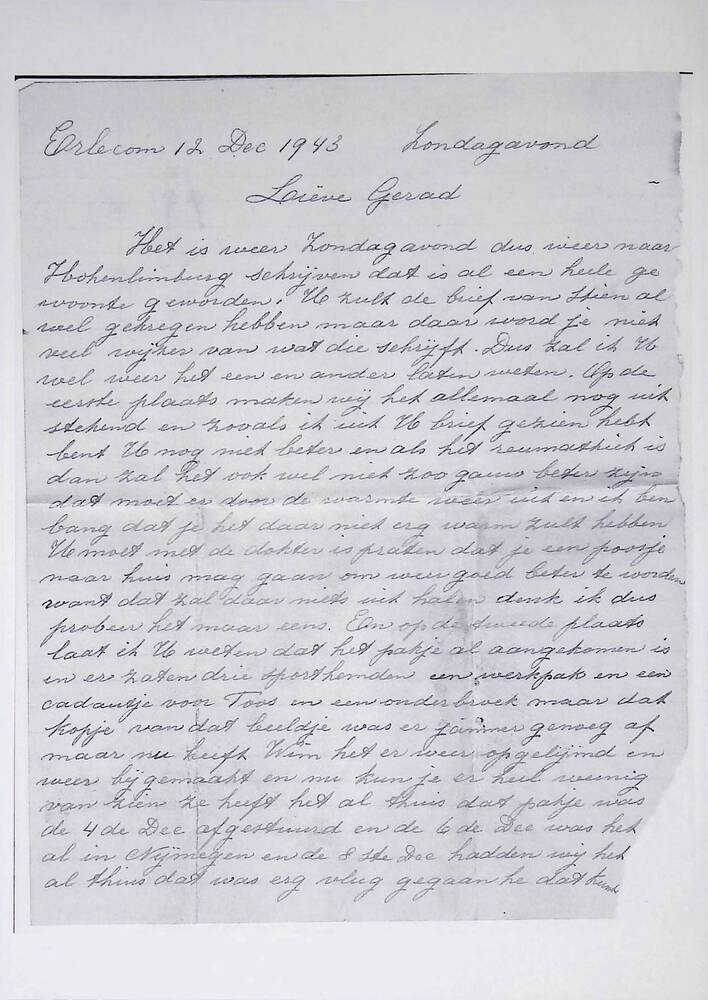 Erlecom 12 Dec 1943 Zondagavond
Lieve Gerad
Het is weer Zondagavond dus weer naar
Hohenlimburg schrijven dat is al een heile ge
woonte geworden. U zult de brief van Stien al
wel gekregen hebben maar daar word je niet
veel wijzer van wat die schrijft. Dus zal ik U
wel weer het een en ander laten weten. Op de
eerste plaats maken wij het allemaal nog uit
stekend en zoals ik uit U brief gezien hebt
bent U nog niet beter en als het reumathiek is
dan zal het ook wel niet zoo gauw beter zijn
dat moet er door de warmte weer uit en ik ben
bang dat je het daar niet erg warm zult hebben
U moet met de dokter is praten dat je een poosje
naar huis mag gaan om weer goed beter te worden
want dat zal daar niets uit halen denk ik dus
probeer het maar eens. En op de tweede plaats
laat ik U weten dat het pakje al aangekomen is
en er zaten drie sporthemden een werkpak en een
cadautje voor Toos en een onderbroek maar dat
kopje van dat beeldje was er jammer genoeg af
maar nu heeft Wim het er weer opgelijmd en
weer bij gemaakt en nu kun je er heel weinig
van zien ze heeft het al thuis dat pakje was
de 4 de Dec afgestuurd en de 6 de Dec was het
al in Nijmegen en de 8 ste Dec hadden wij het
al thuis dat was erg vlug gegaan he dat